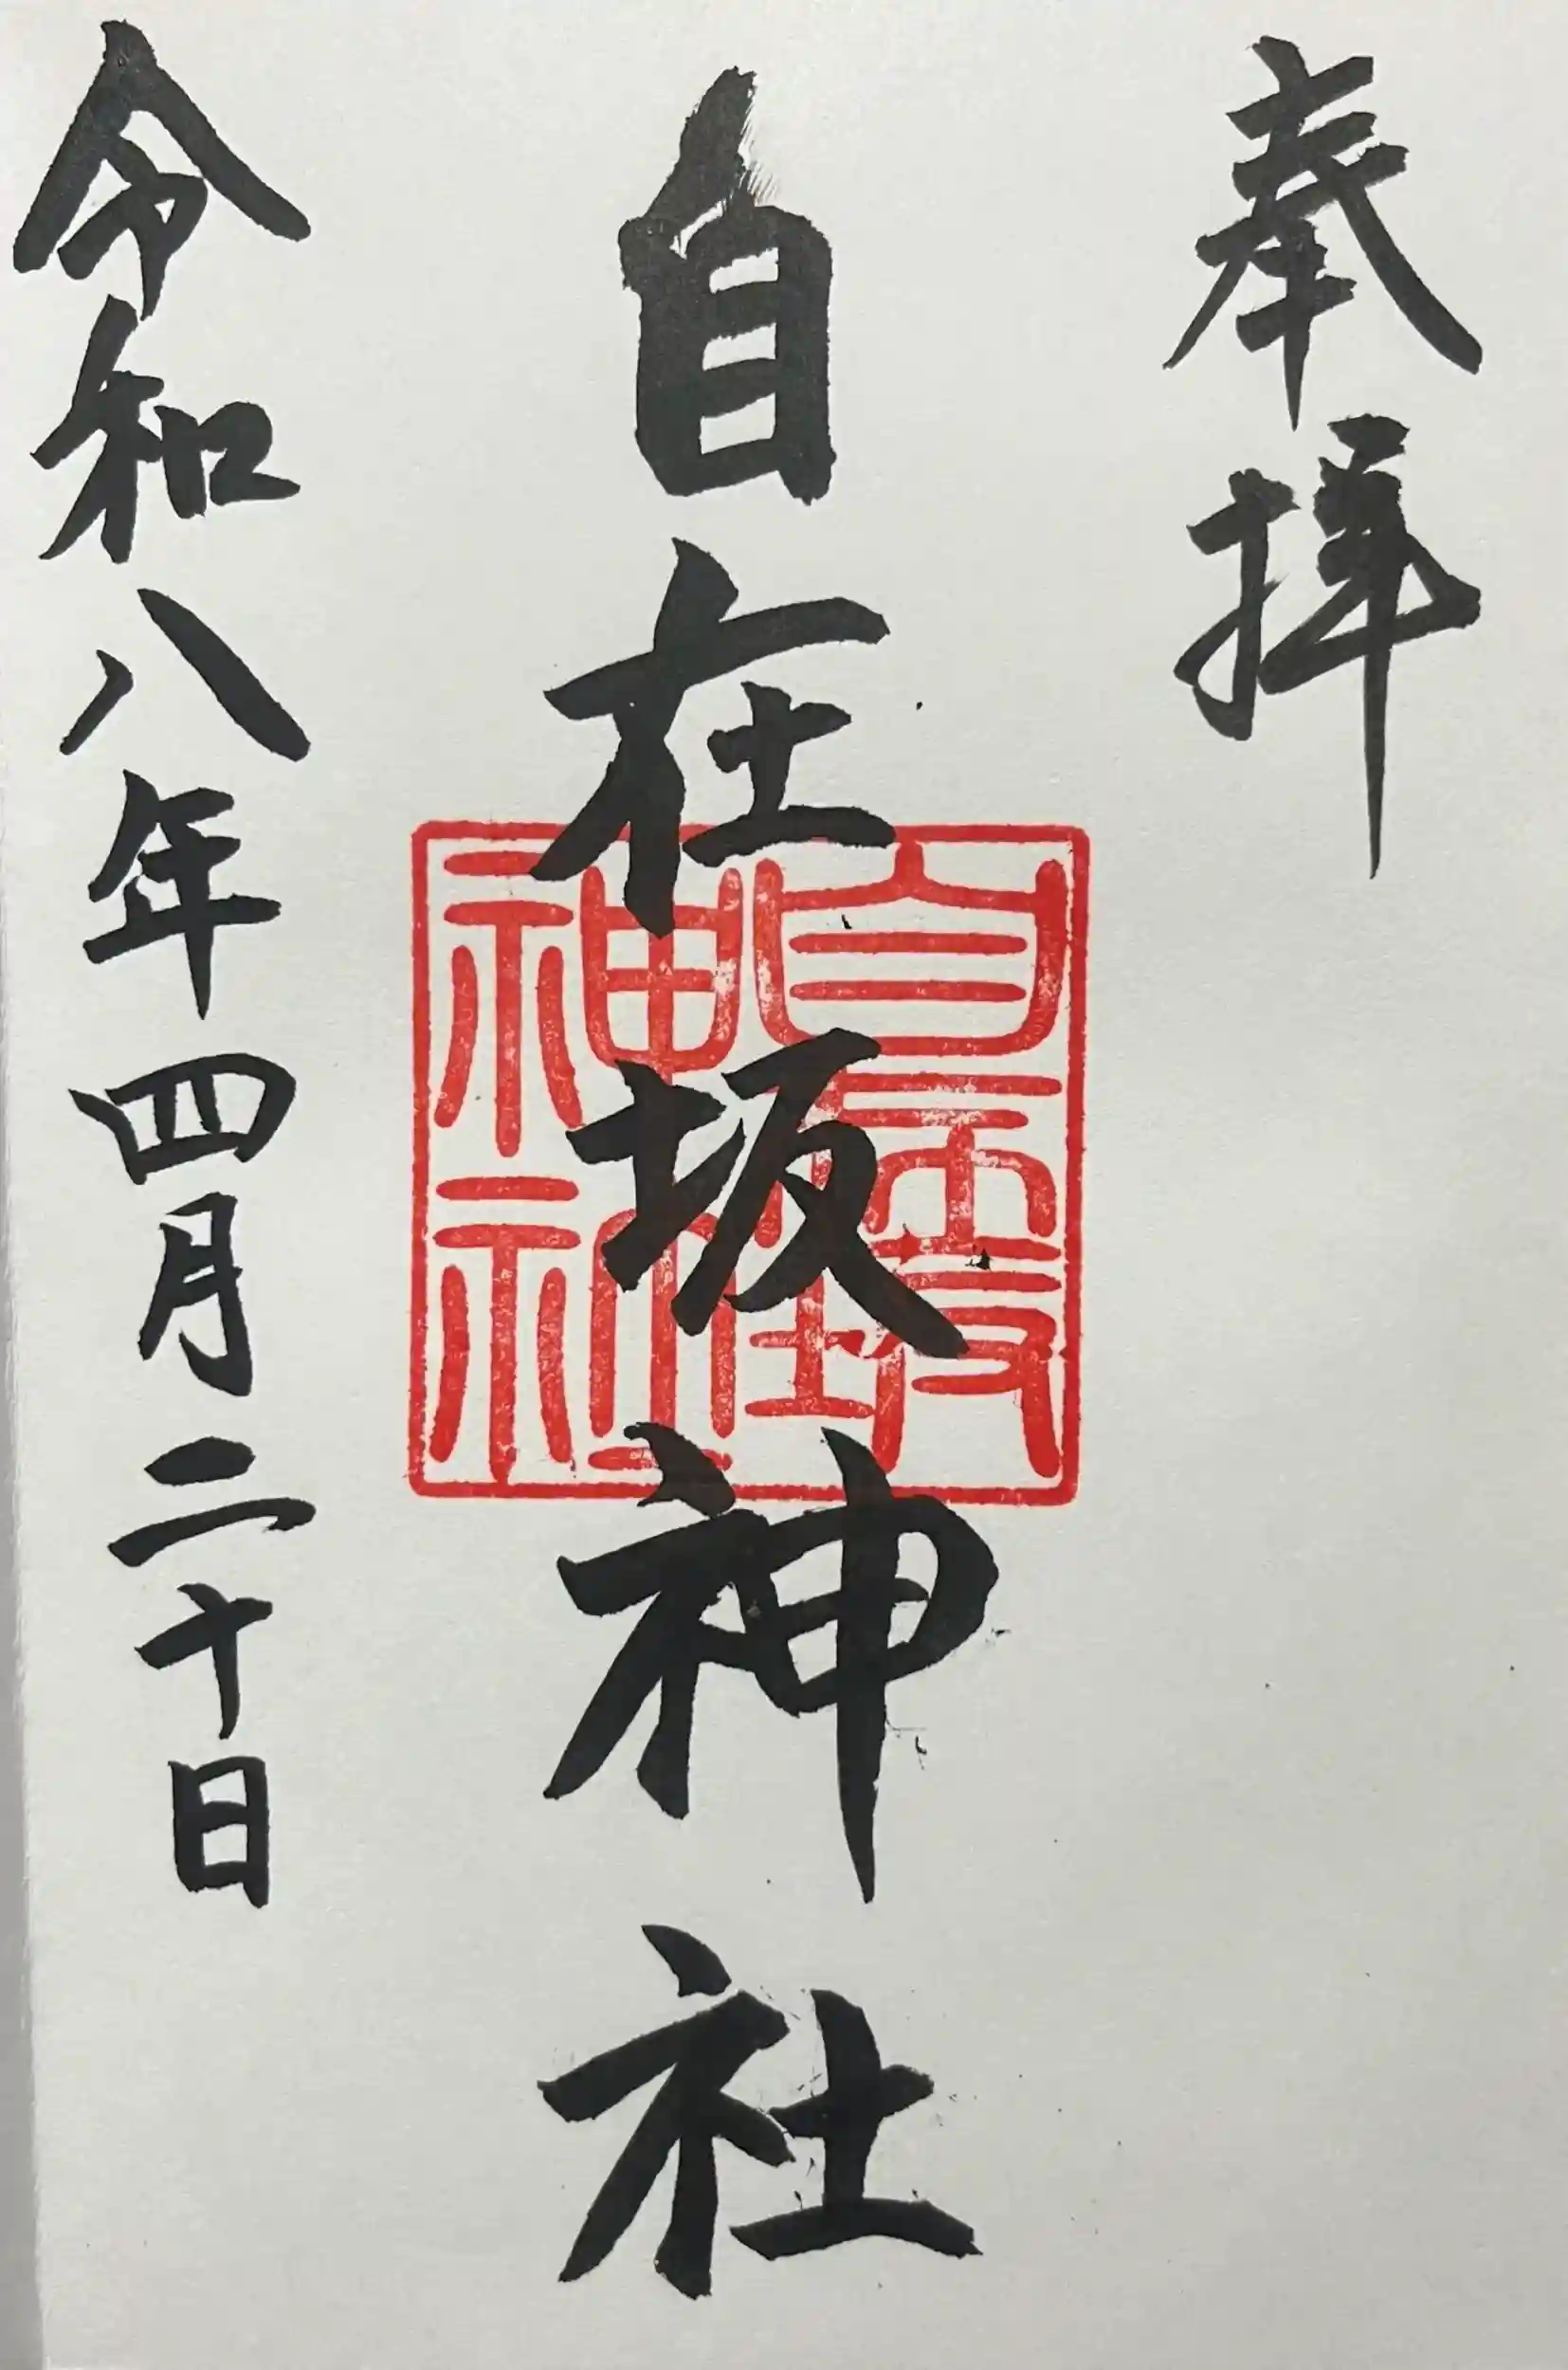 奉拝
自在坂神社
自在坂
神社
令和八年四月二十日